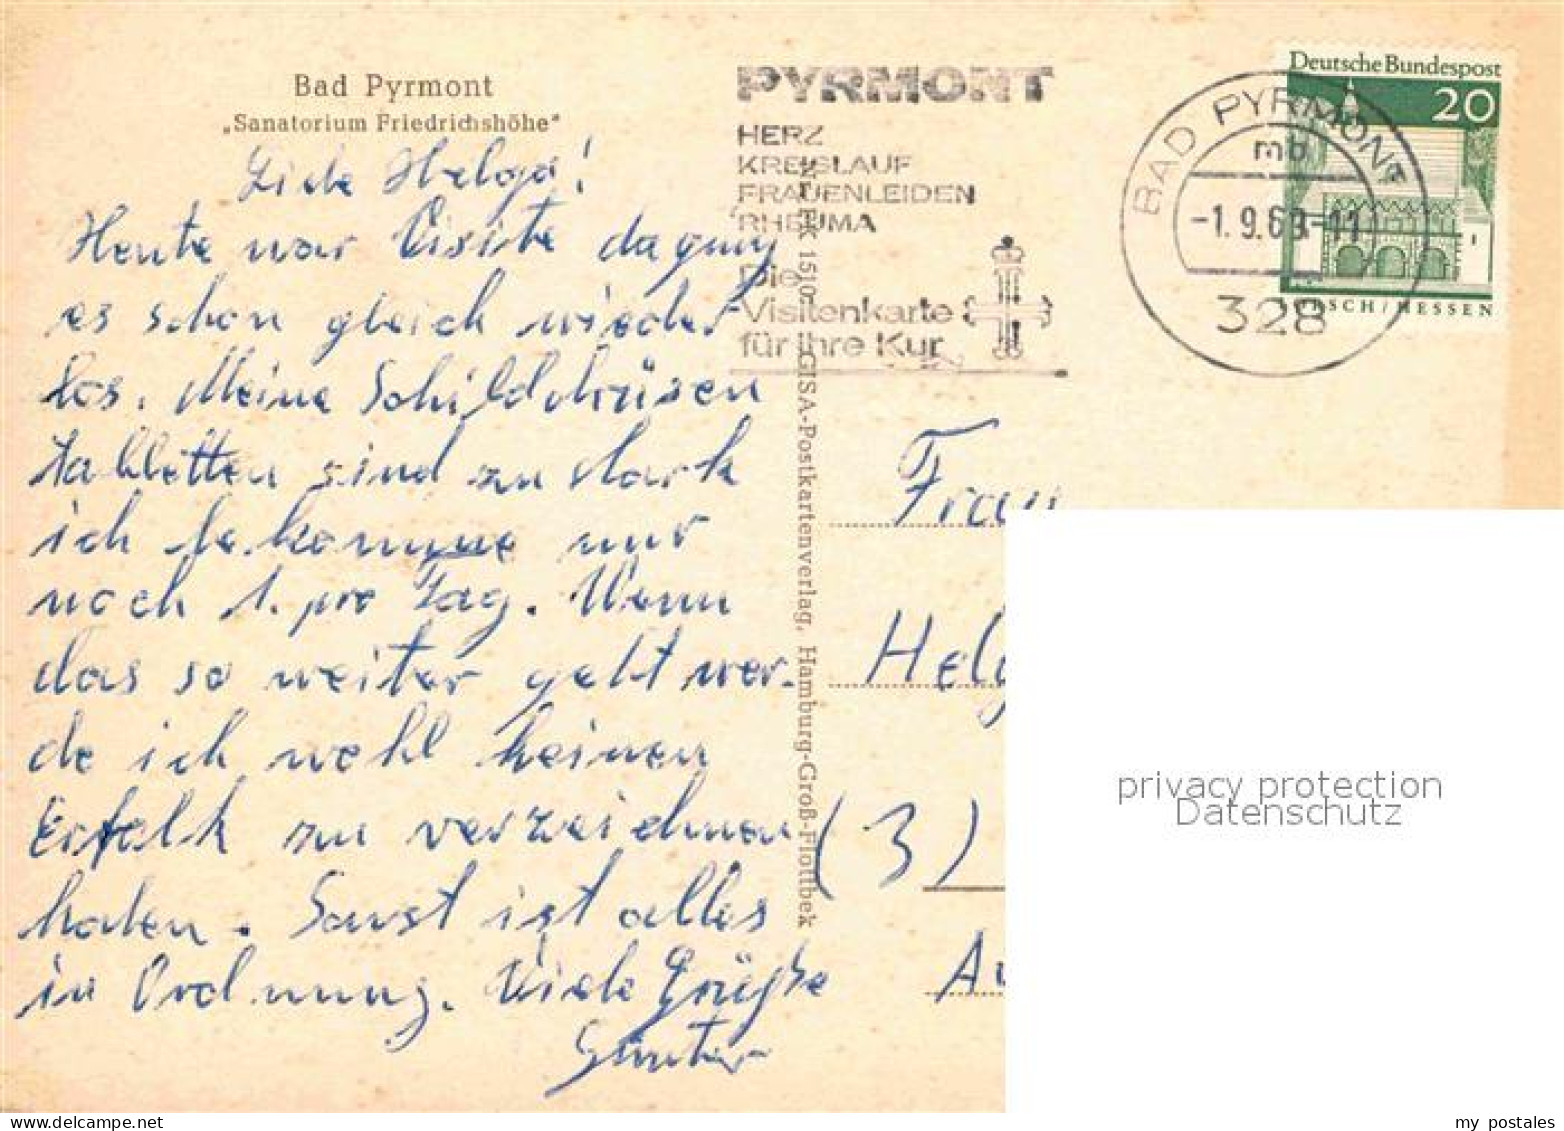 Bad Pyrmont
„Sanatorium Friedrichshöhe"
Liebe Helga!
Heute war Visite da ging
es schon gleich wieder
los. Meine Schilddrüsen
Tabletten sind zu stark
ich bekomme nur
noch 1. pro Tag. Wenn
das so weiter geht wer-
de ich wohl keinen
Erfolk zu verzeichnen
haben. Sonst ist alles
in Ordnung. Viele Grüße
Günter
PYRMONT
HERZ
KREISLAUF
FRAUENLEIDEN
RHEUMA
Die
Visitenkarte
für Ihre Kur
GISA-Postkartenverlag, Hamburg-Groß-Flottbek
BAD PYRMONT
mb
-1.9.69-11
328
Deutsche Bundespost
20
LORSCH/HESSEN
Frau
Helg
(3)
privacy protection
Datenschutz
my postales